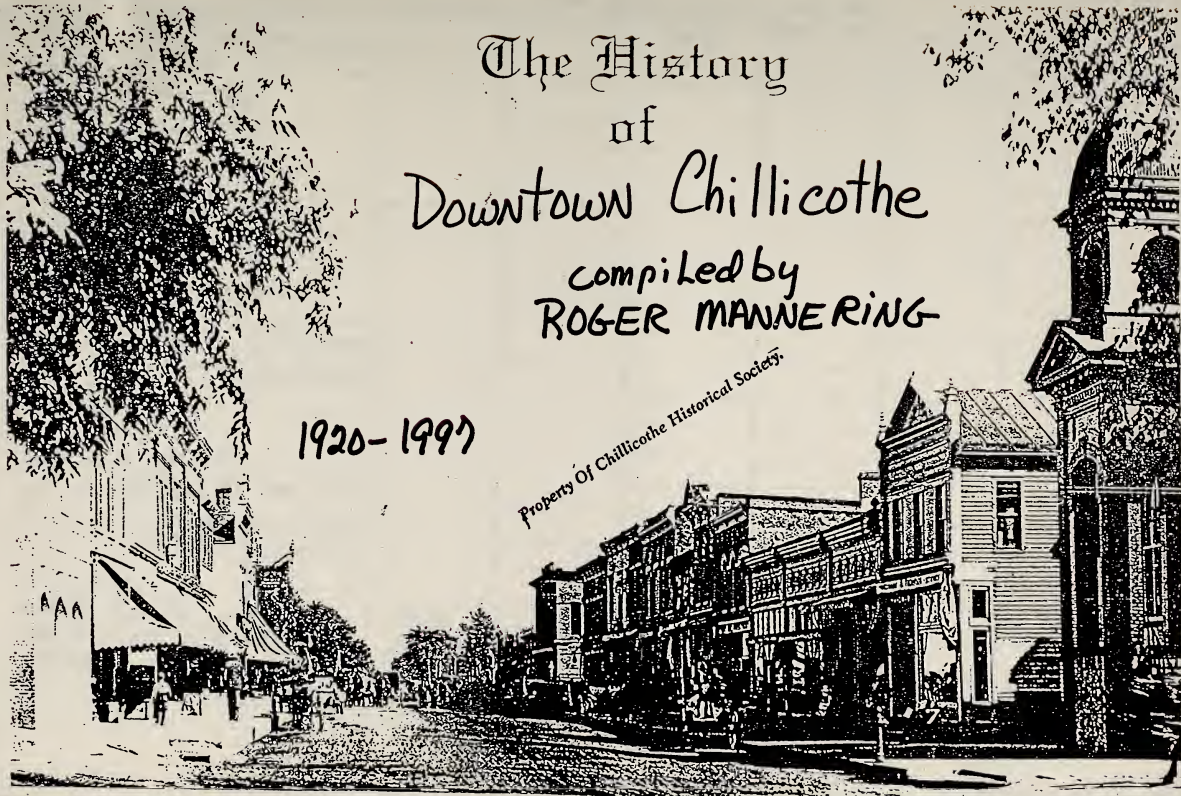 The History
of
Downtown Chillicothe
compiled by
ROGER MANNERING
1920-1997
Property Of Chillicothe Historical Society.